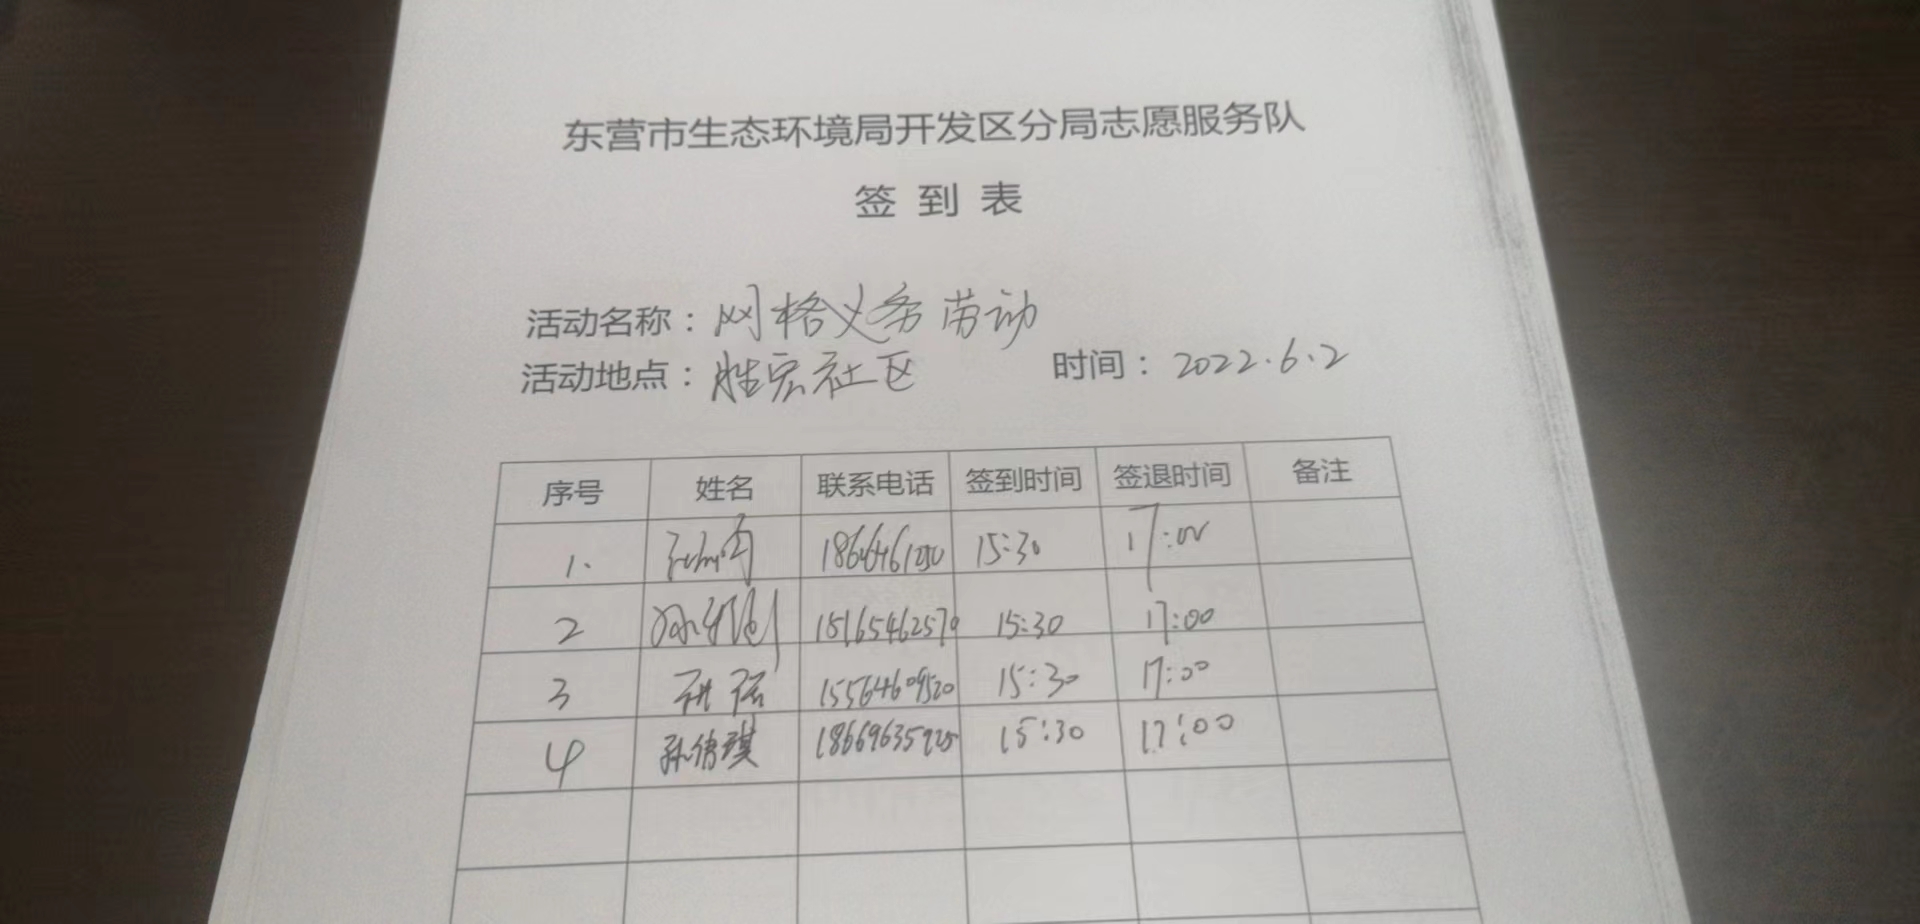 东营市生态环境局开发区分局志愿服务队
签 到 表
活动名称：网格义务劳动
活动地点：胜宏社区 时间：2022.6.2
序号 姓名 联系电话 签到时间 签退时间 备注
1. 15:30 17:00
2 18165462570 15:30 17:00
3 15564609520 15:30 17:00
4 孙倩琪 18669635925 15:30 17:00